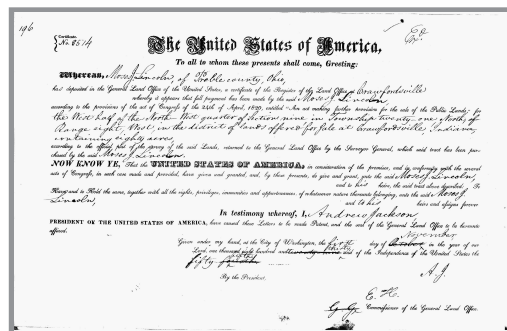 196
Certificate
No. 8514
Exd.
The United States of America,
To all to whom these presents shall come, Greeting:
Whereas, Moses J. Lincoln, of Preble county, Ohio,
has deposited in the General Land Office of the United States, a certificate of the Register of the Land Office at Crawfordsville
whereby it appears that full payment has been made by the said Moses J. Lincoln
according to the provisions of the act of Congress of the 24th of April, 1820, entitled "An act making further provision for the sale of the Public Lands;" for
the West half of the North West quarter of Section nine in Township twenty one North of
Range eight, West, in the district of lands offered for sale at Crawfordsville, Indiana,
containing eighty acres
according to the official plat of the survey of the said Lands, returned to the General Land Office by the Surveyor General, which said tract has been pur-
chased by the said Moses J. Lincoln
NOW KNOW YE, That the UNITED STATES OF AMERICA, in consideration of the premises, and in conformity with the several
acts of Congress, in such case made and provided, have given and granted, and, by these presents, do give and grant, unto the said Moses J. Lincoln,
and to his heirs, the said tract above described: To
Have and to Hold the same, together with all the rights, privileges, immunities and appurtenances of whatsoever nature thereunto belonging, unto the said Moses J.
Lincoln, and to his heirs and assigns forever
In testimony whereof, I, Andrew Jackson
PRESIDENT OF THE UNITED STATES OF AMERICA, have caused these Letters to be made Patent, and the seal of the General Land Office to be hereunto
affixed.
November
Given under my hand, at the City of Washington, the first day of October in the year of our
Lord, one thousand eight hundred and and of the Independence of the United States the
fifty
By the President,
A. J.
E. H.
Commissioner of the General Land Office.